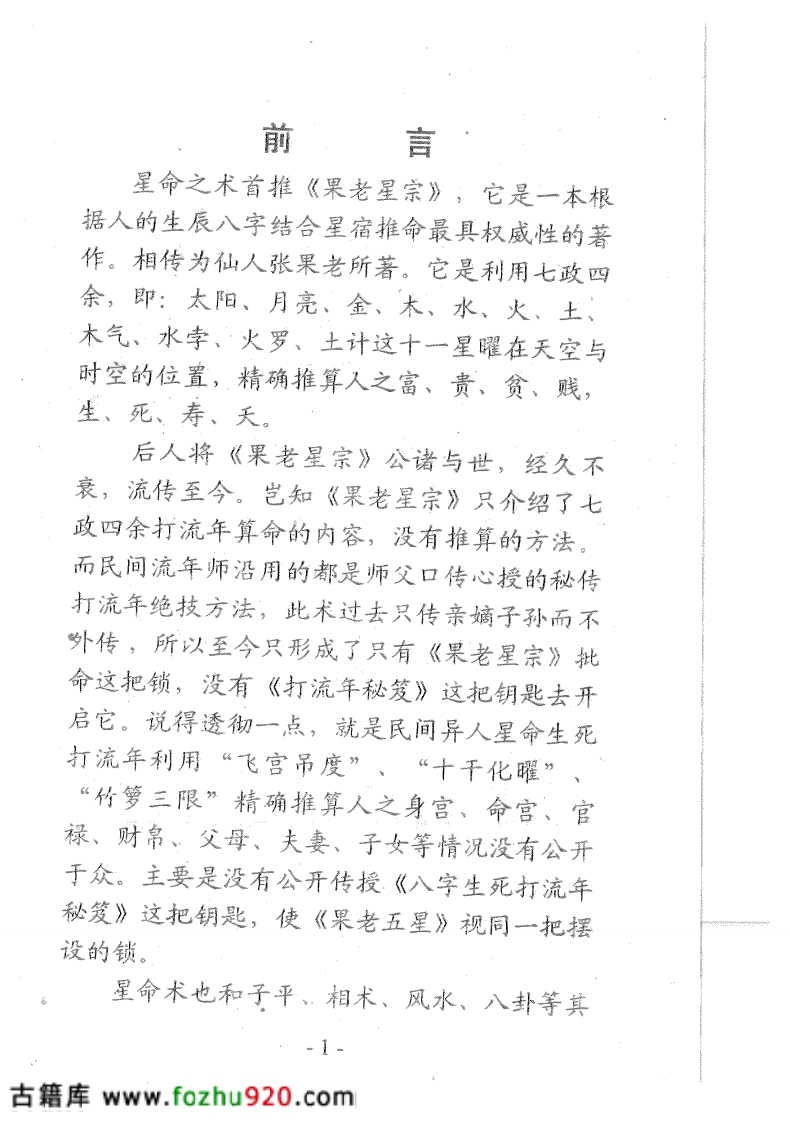 前言
星命之术首推《果老星宗》，它是一本根
据人的生辰八字结合星宿推命最具权威性的著
作。相传为仙人张果老所著。它是利用七政四
余，即：太阳、月亮、金、木、水、火、土、
木气、水孛、火罗、土计这十一星曜在天空与
时空的位置，精确推算人之富、贵、贫、贱，
生、死、寿、夭。
后人将《果老星宗》公诸与世，经久不
衰，流传至今。岂知《果老星宗》只介绍了七
政四余打流年算命的内容，没有推算的方法。
而民间流年师沿用的都是师父口传心授的秘传
打流年绝技方法，此术过去只传亲嫡子孙而不
外传，所以至今只形成了只有《果老星宗》批
命这把锁，没有《打流年秘笈》这把钥匙去开
启它。说得透彻一点，就是民间异人星命生死
打流年利用“飞宫吊度”、“十干化曜”、
“竹箩三限”精确推算人之身宫、命宫、官
禄、财帛、父母、夫妻、子女等情况没有公开
于众。主要是没有公开传授《八字生死打流年
秘笈》这把钥匙，使《果老五星》视同一把摆
设的锁。
星命术也和子平、相术、风水、八卦等其
- 1 -
古籍库 www.fozhu920.com